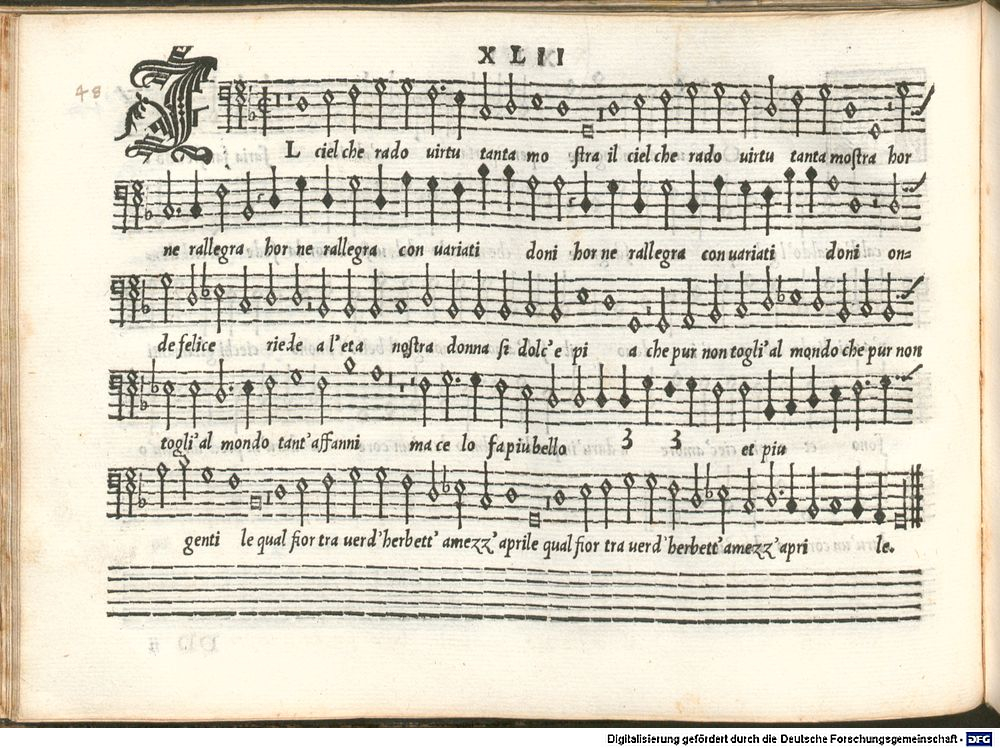 XLIII
48
IL ciel che rado uirtu tanta mo stra il ciel che rado uirtu tanta mostra hor
ne rallegra hor ne rallegra con uariati doni hor ne rallegra con uariati doni on=
de felice riede a l'eta nostra donna si dolc'e pi a che pur non togli'al mondo che pur non
togli'al mondo tant'affanni ma ce lo fa piu bello 3 3 et piu
genti le qual fior tra uerd'herbett'a mezz'aprile qual fior tra uerd'herbett'a mezz'apri le.
Digitalisierung gefördert durch die Deutsche Forschungsgemeinschaft - DFG